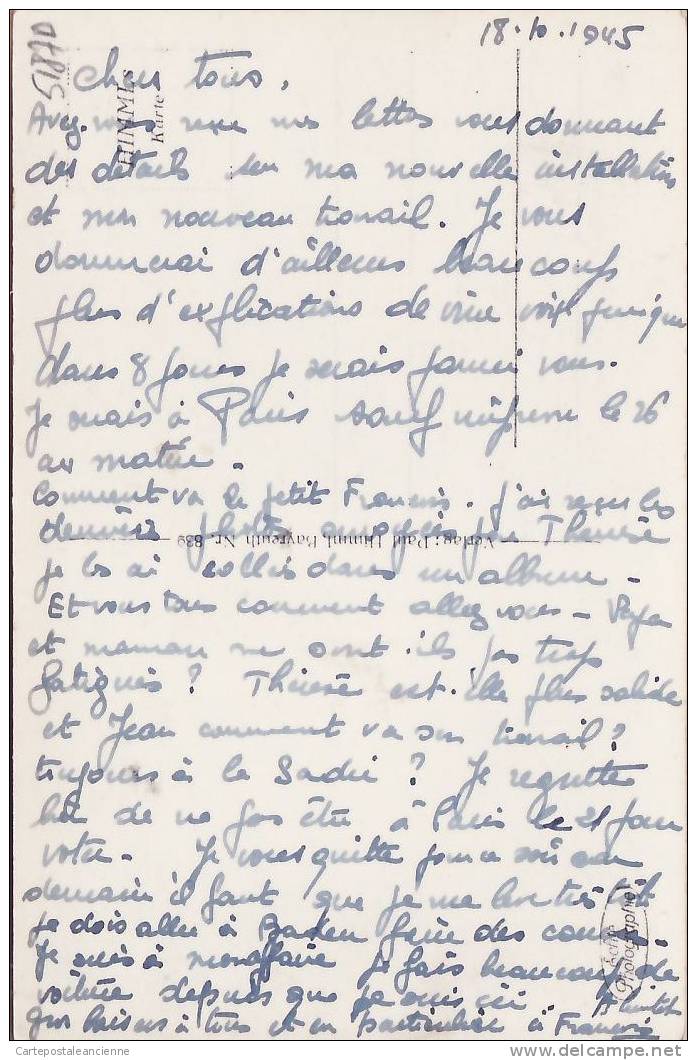 18.10.1945
51870
Chers tous,
HIMML's
Karte
Avez-vous reçu mes lettres vous donnant
des détails sur ma nouvelle installation
et mon nouveau travail. Je vous
donnerai d'ailleurs beaucoup
plus d'explications de vive voix puisque
dans 8 jours je serais parmi vous.
Je serais à Paris sauf imprévu le 26
au matin.
Comment va le petit Francis. J'ai reçu les
dernières photos envoyées par Thérèse
Verlag: Paul Himml, Bayreuth, Nr. 839
je les ai collés dans un album -
Et vous tous comment allez vous - Papa
et maman ne sont-ils pas trop
fatigués ? Thérèse est-elle plus solide
et Jean comment va son travail ?
toujours à la Sadie ? Je regrette
de ne pas être à Paris le 21 pour
voter. Je vous quitte pour ce soir car
demain il faut que je me lève très tôt
je dois aller à Baden faire des courses.
Echte
Photographie
Je suis à mon affaire je fais beaucoup de
voiture depuis que je suis ici. A bientôt
gros baisers à tous et en particulier à Francis
Cartepostaleancienne
www.delcampe.net